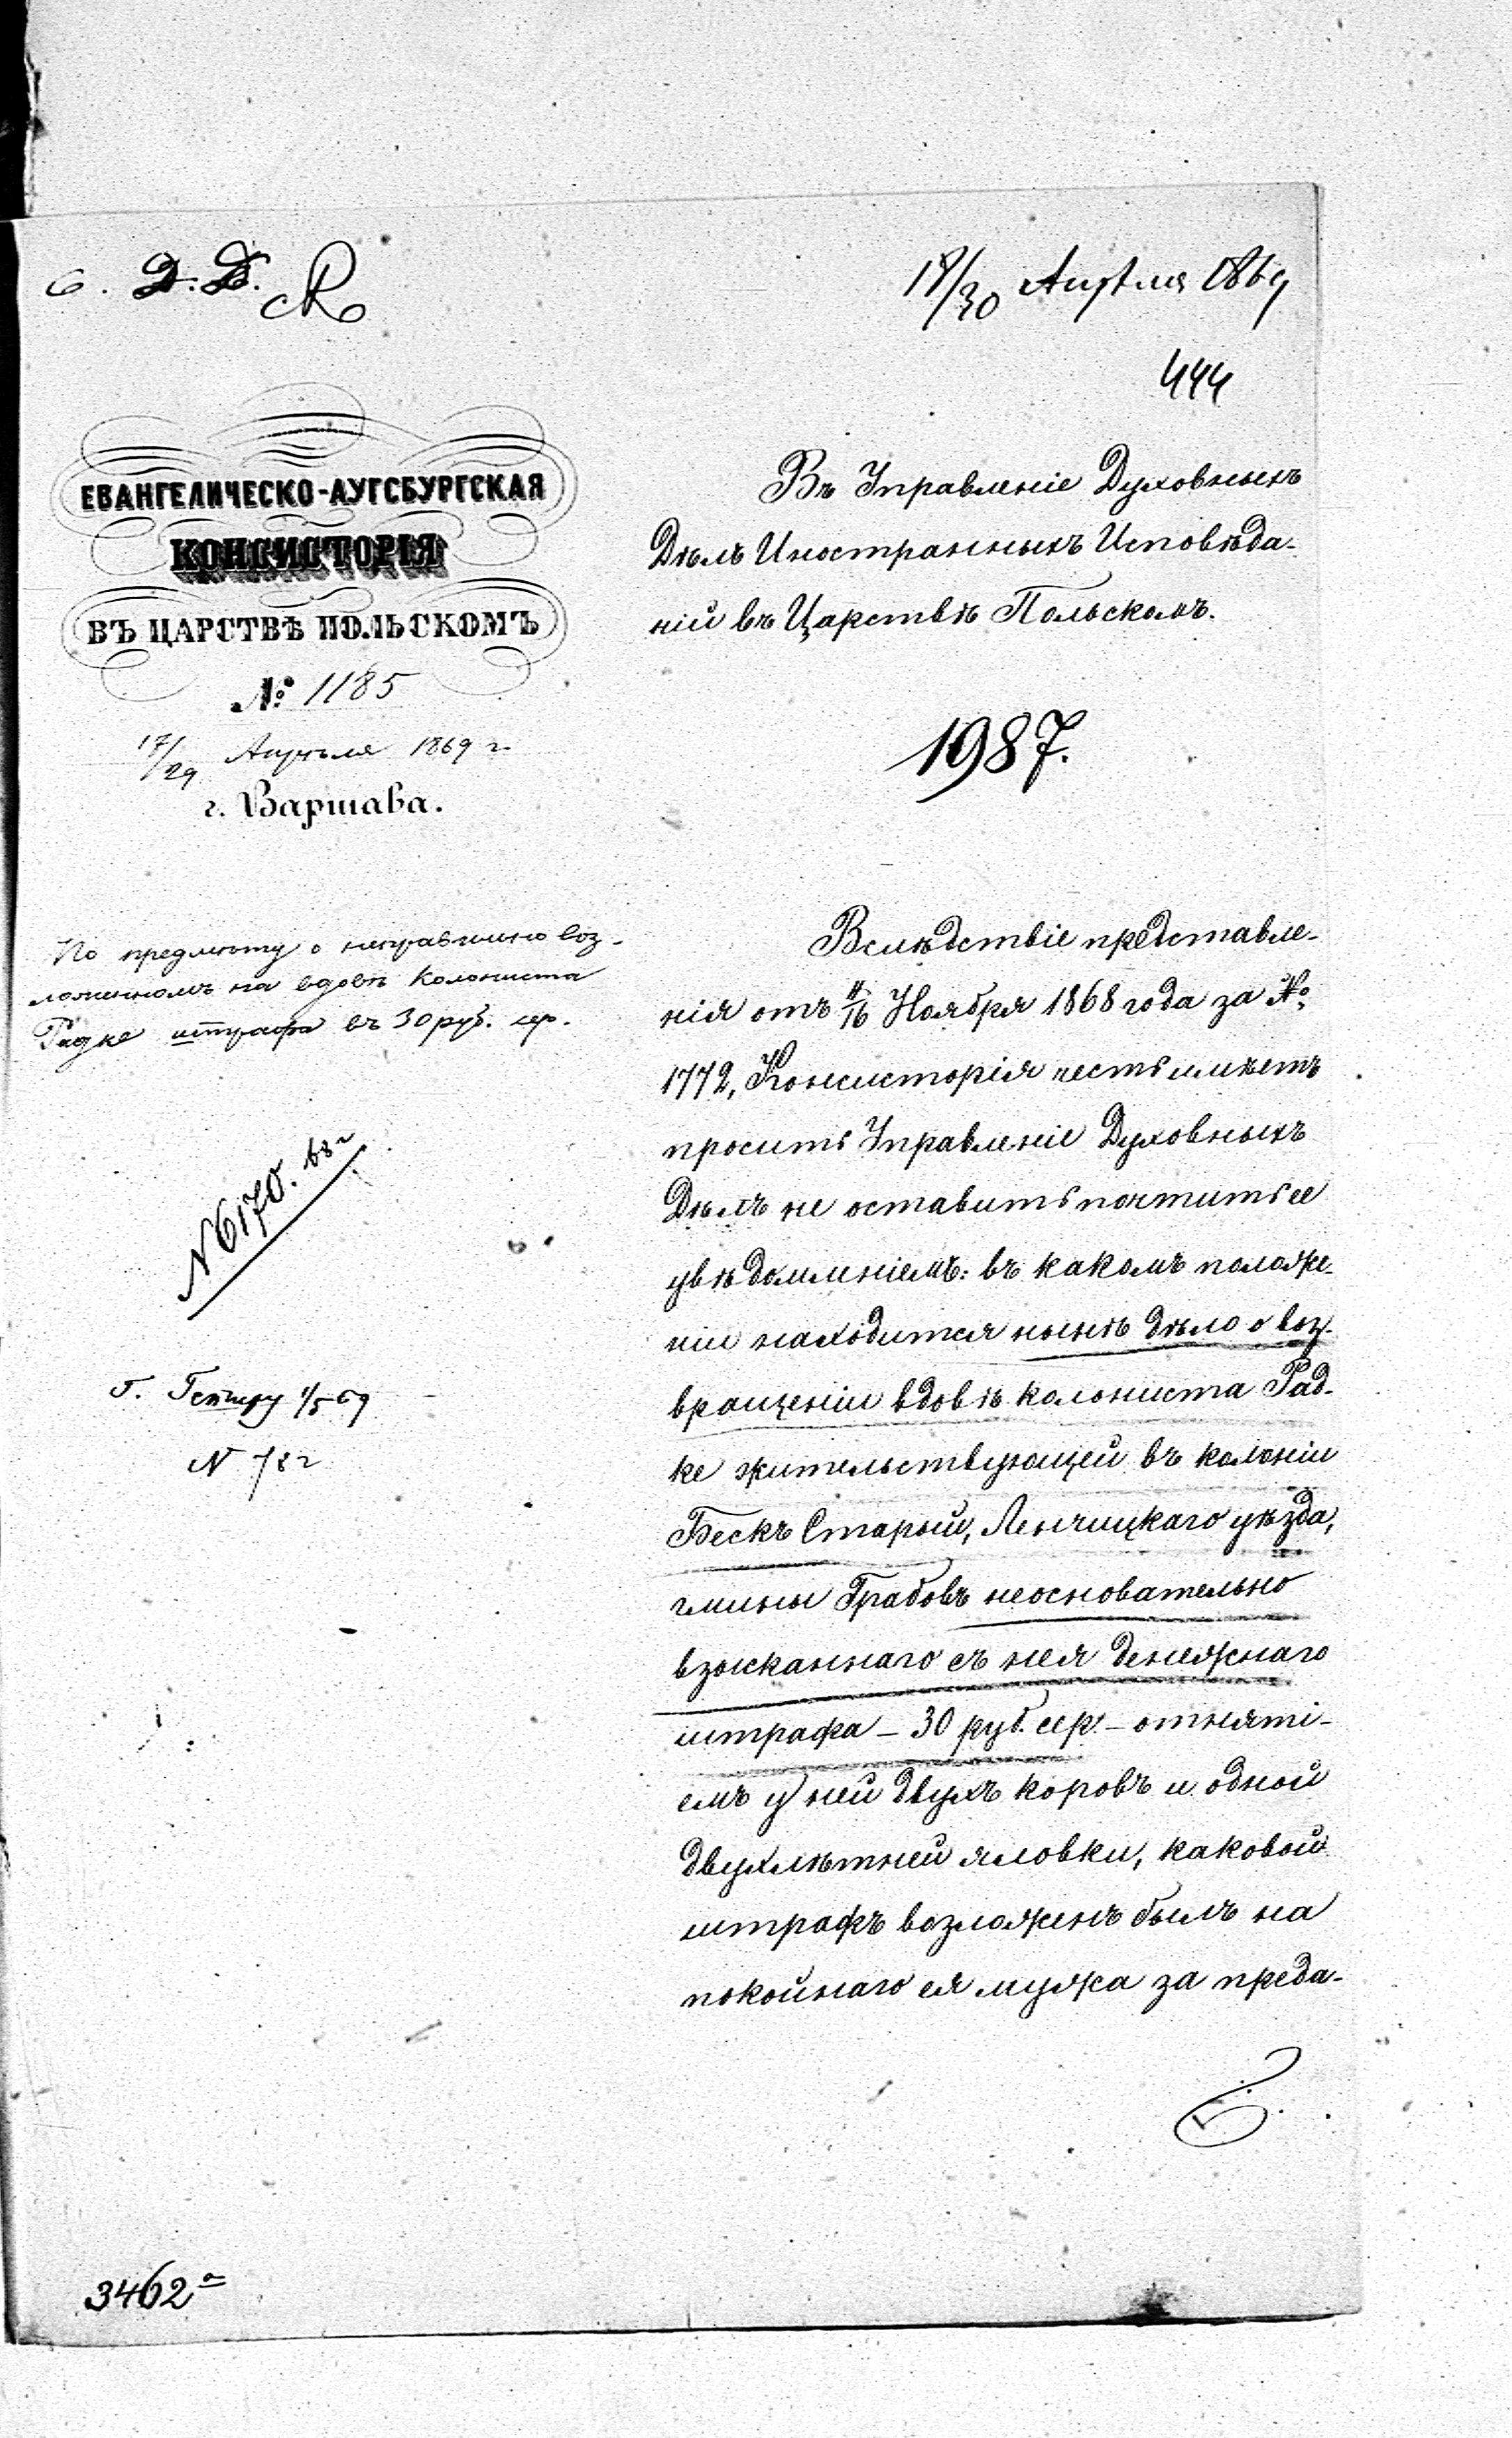 6. Д.Д.
18/30 Апрѣля 1869
444
ЕВАНГЕЛИЧЕСКО-АУГСБУРГСКАЯ
КОНСИСТОРІЯ
ВЪ ЦАРСТВѢ ПОЛЬСКОМЪ
№ 1185
17/29 Апрѣля 1869 г.
г. Варшава.
По предмету о неправильно воз-
ложенномъ на вдовѣ колониста
Радке штрафа въ 30 руб. сер.
N 6170.
1/5 69
N 782
3462а
Въ Управленіе Духовныхъ
Дѣлъ Иностранныхъ Исповѣда-
ній въ Царствѣ Польскомъ.
1987.
Вслѣдствіе представле-
нія отъ 4/16 Ноября 1868 года за №
1772, Консисторія честь имѣетъ
просить Управленіе Духовныхъ
Дѣлъ не оставить почтить ее
увѣдомленіемъ: въ какомъ положе-
ніи находится нынѣ дѣло о воз-
вращеніи вдовѣ колониста Рад-
ке жительствующей въ колоніи
Бескъ Старый, Ленчицкаго уѣзда,
гмины Грабовъ неосновательно
взысканнаго съ нея денежнаго
штрафа – 30 руб. сер. – отняті-
емъ у ней двухъ коровъ и одной
двухлѣтней яловки, каковой
штрафъ возложенъ былъ на
покойнаго ея мужа за преда-